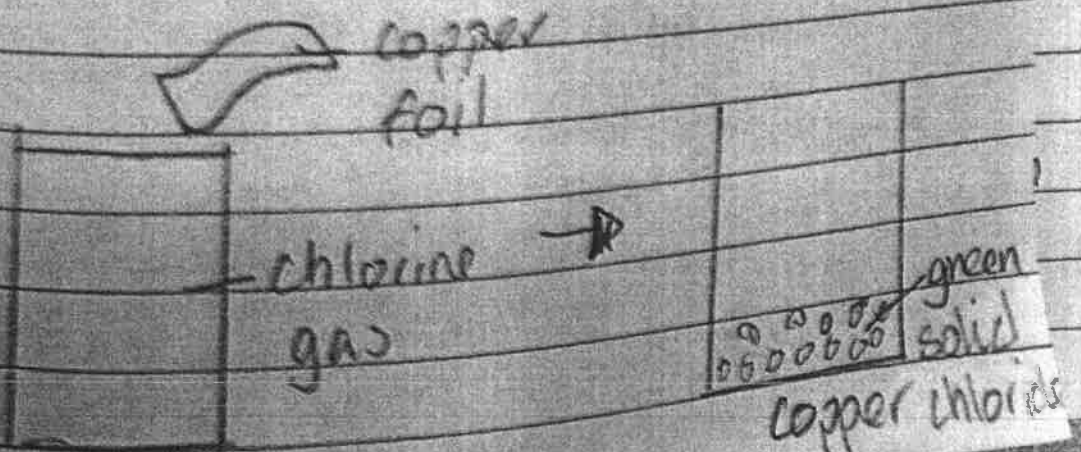 copper
foil
chlorine
gas
green
solid
copper chloride